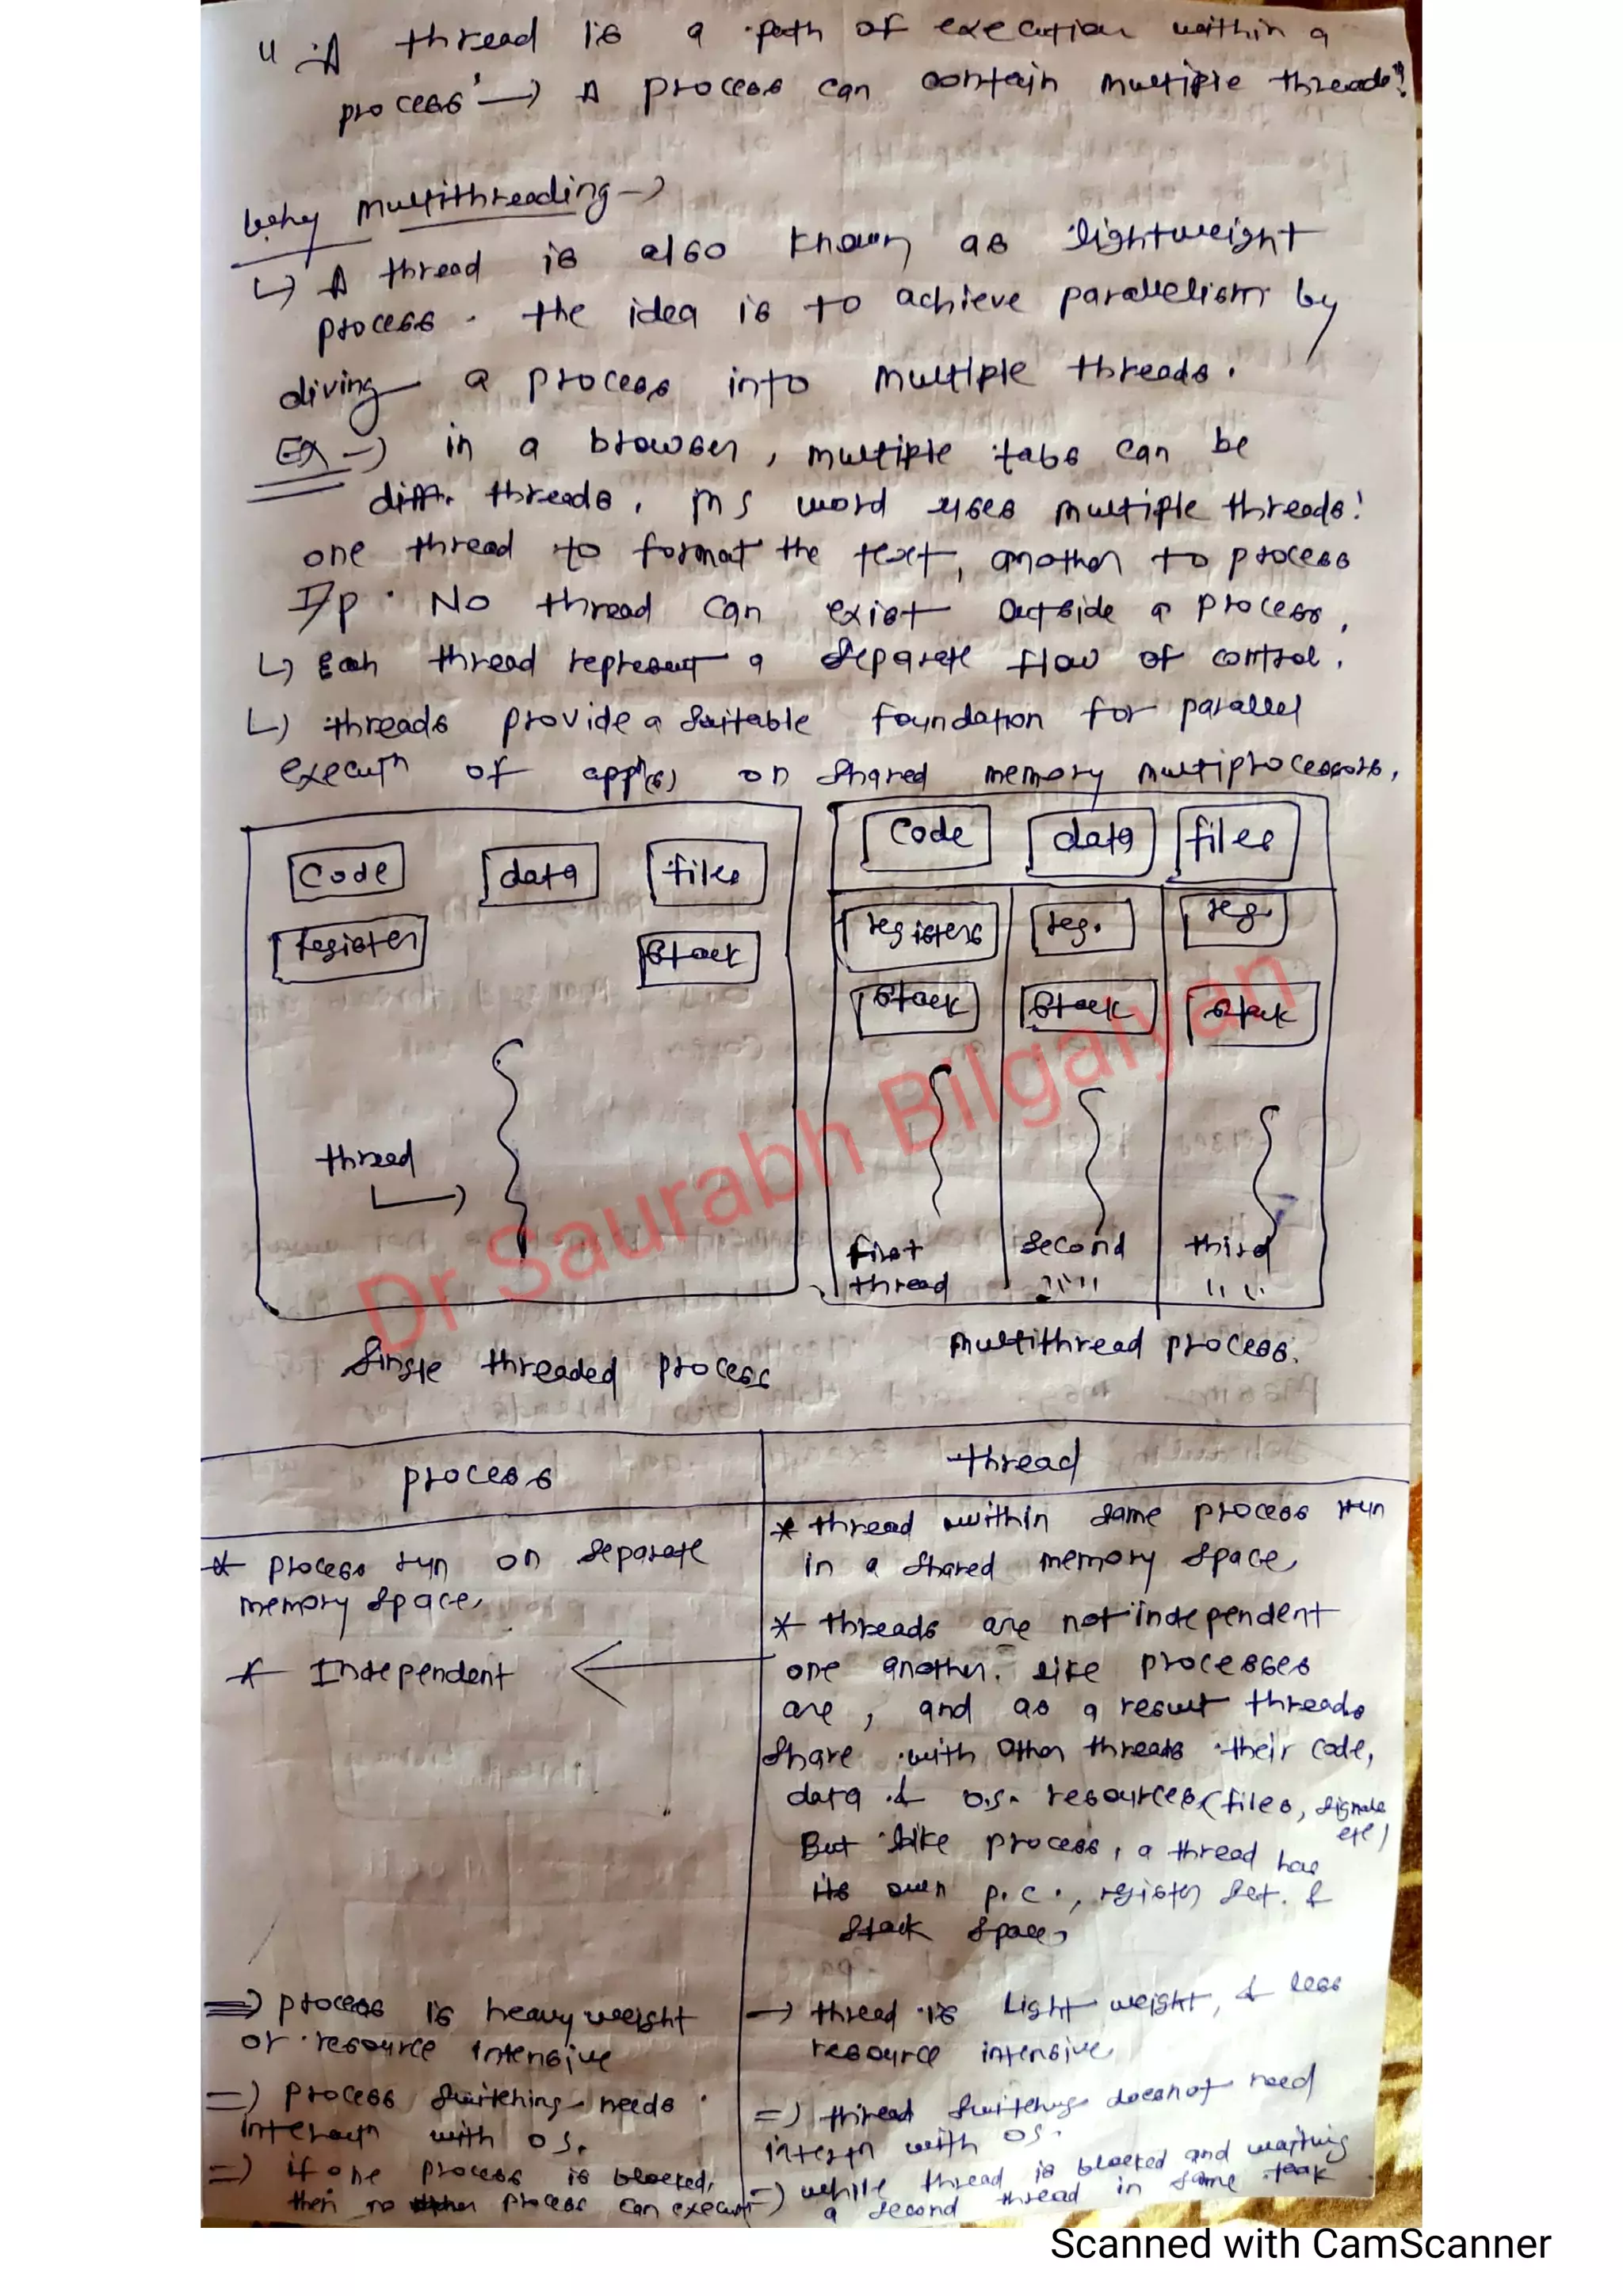 " A thread is a path of execution within a
process' → A process can contain multiple threads"
Why Multithreading →
↳ A thread is also known as lightweight
process. the idea is to achieve parallelism by
diving a process into multiple threads.
Ex → in a browser, multiple tabs can be
diff. threads, MS word uses multiple threads:
one thread to format the text, another to process
I/p. No thread can exist outside a process.
↳ Each thread represent a separate flow of control.
↳ threads provide a suitable foundation for parallel
execuⁿ of applⁿ(s) on shared memory multiprocessors.
Code data files
register stack
thread
Single threaded process
Code data files
registers reg. reg.
stack stack stack
first second third
thread " " " "
Multithread process.
process thread
* process run on separate
memory space.
* Independent
⇒ process is heavy weight
or resource intensive
⇒ process switching needs
interactⁿ with OS.
⇒ if one process is blocked,
then no other process can execute
* thread within same process run
in a shared memory space
* threads are not independent
one another. like processes
are, and as a result threads
share with other threads their code,
data & o.s. resources (files, signals
etc)
But like process, a thread has
its own p.c., register set. &
stack space
→ thread is Light weight, & less
resource intensive
⇒ thread switching doesnot need
interⁿ with OS.
⇒ while thread is blocked and waiting
a second thread in same task
Dr Saurabh Bilgaiyan
Scanned with CamScanner